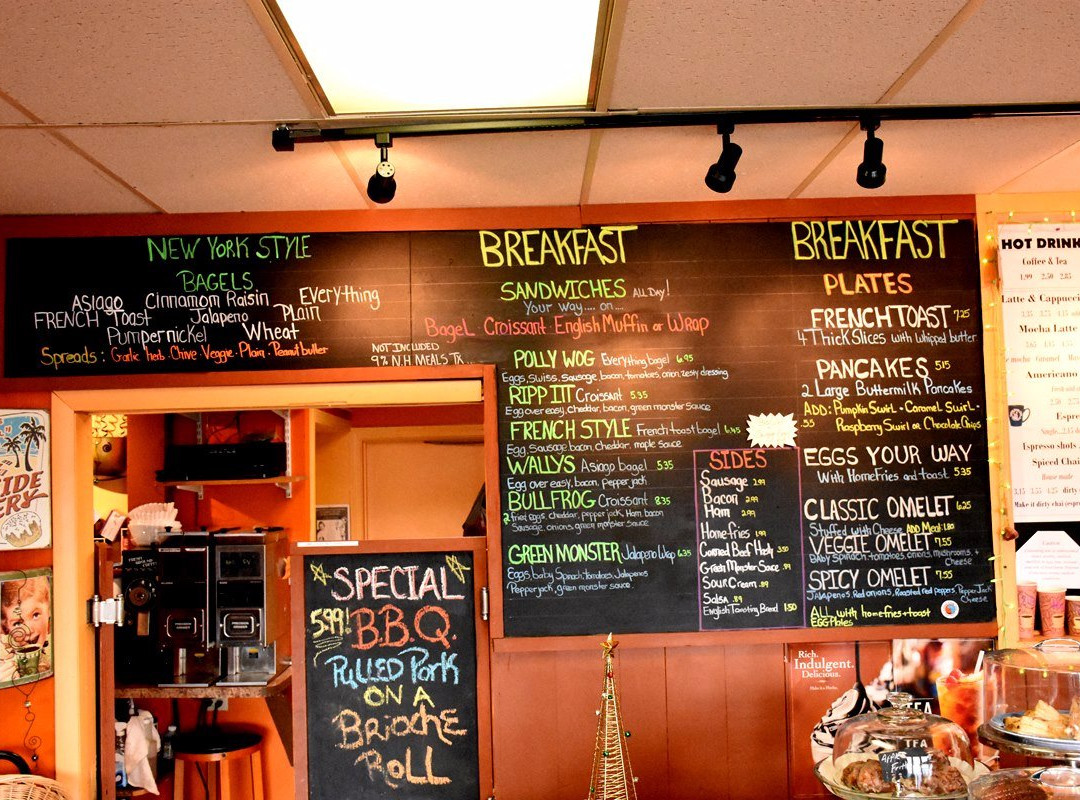 NEW YORK STYLE
BAGELS
Asiago Cinnamom Raisin Everything
FRENCH Toast Jalapeno PLAIN
Pumpernickel Wheat
Spreads: Garlic herb. Chive. Veggie. Plain. Peanut butter
NOT INCLUDED
9% N.H MEALS TX
BREAKFAST
SANDWICHES ALL DAY!
Your way.... on....
Bagel Croissant English Muffin or Wrap
POLLY WOG Everything bagel 6.95
Eggs, Swiss, Sausage, bacon, tomatoes, onion, zesty dressing
RIPP IIT Croissant 5.35
Egg over easy, cheddar, bacon, green monster sauce
FRENCH STYLE French toast bagel 6.45
Egg, Sausage, bacon, cheddar, maple sauce
WALLYS Asiago bagel 5.35
Egg over easy, bacon, pepper jack
BULLFROG Croissant 8.35
2 fried eggs, cheddar, pepper jack, Ham, bacon
Sausage, onions, green monster sauce
GREEN MONSTER Jalapeno Wrap 6.35
Eggs, baby Spinach, Tomatoes, Jalapenos
Pepper jack, green monster sauce
SIDES
Sausage 2.99
Bacon 2.99
Ham 2.99
Home-fries 1.99
Corned Beef Hash 3.50
Green Monster Sauce .99
Sour Cream .89
Salsa .89
English Toasting Bread 1.50
BREAKFAST
PLATES
FRENCH TOAST 7.25
4 Thick Slices with Whipped butter
PANCAKES 5.15
2 Large Buttermilk Pancakes
ADD: Pumpkin Swirl - Caramel Swirl -
.55 Raspberry Swirl or Chocolate Chips
EGGS YOUR WAY
With Homefries and toast 5.35
CLASSIC OMELET 6.25
Stuffed with Cheese ADD Meat 1.80
VEGGIE OMELET 7.55
Baby Spinach, tomatoes, onions, mushrooms, +
Cheese
SPICY OMELET 7.55
Jalapenos, Red onions, Roasted red peppers, Pepper Jack
Cheese
ALL with homefries + toast
EGG Plates
SPECIAL
5.99! B.B.Q.
Pulled Pork
ON A
Brioche
Roll
HOT DRINK
Coffee & Tea
1.99 2.50 2.85
Latte & Cappucc
Mocha Latte
Americano
Espre
Espresso shots
Spiced Chai
Home made
Make it dirty chai
Rich.
Indulgent.
Delicious.
TEA